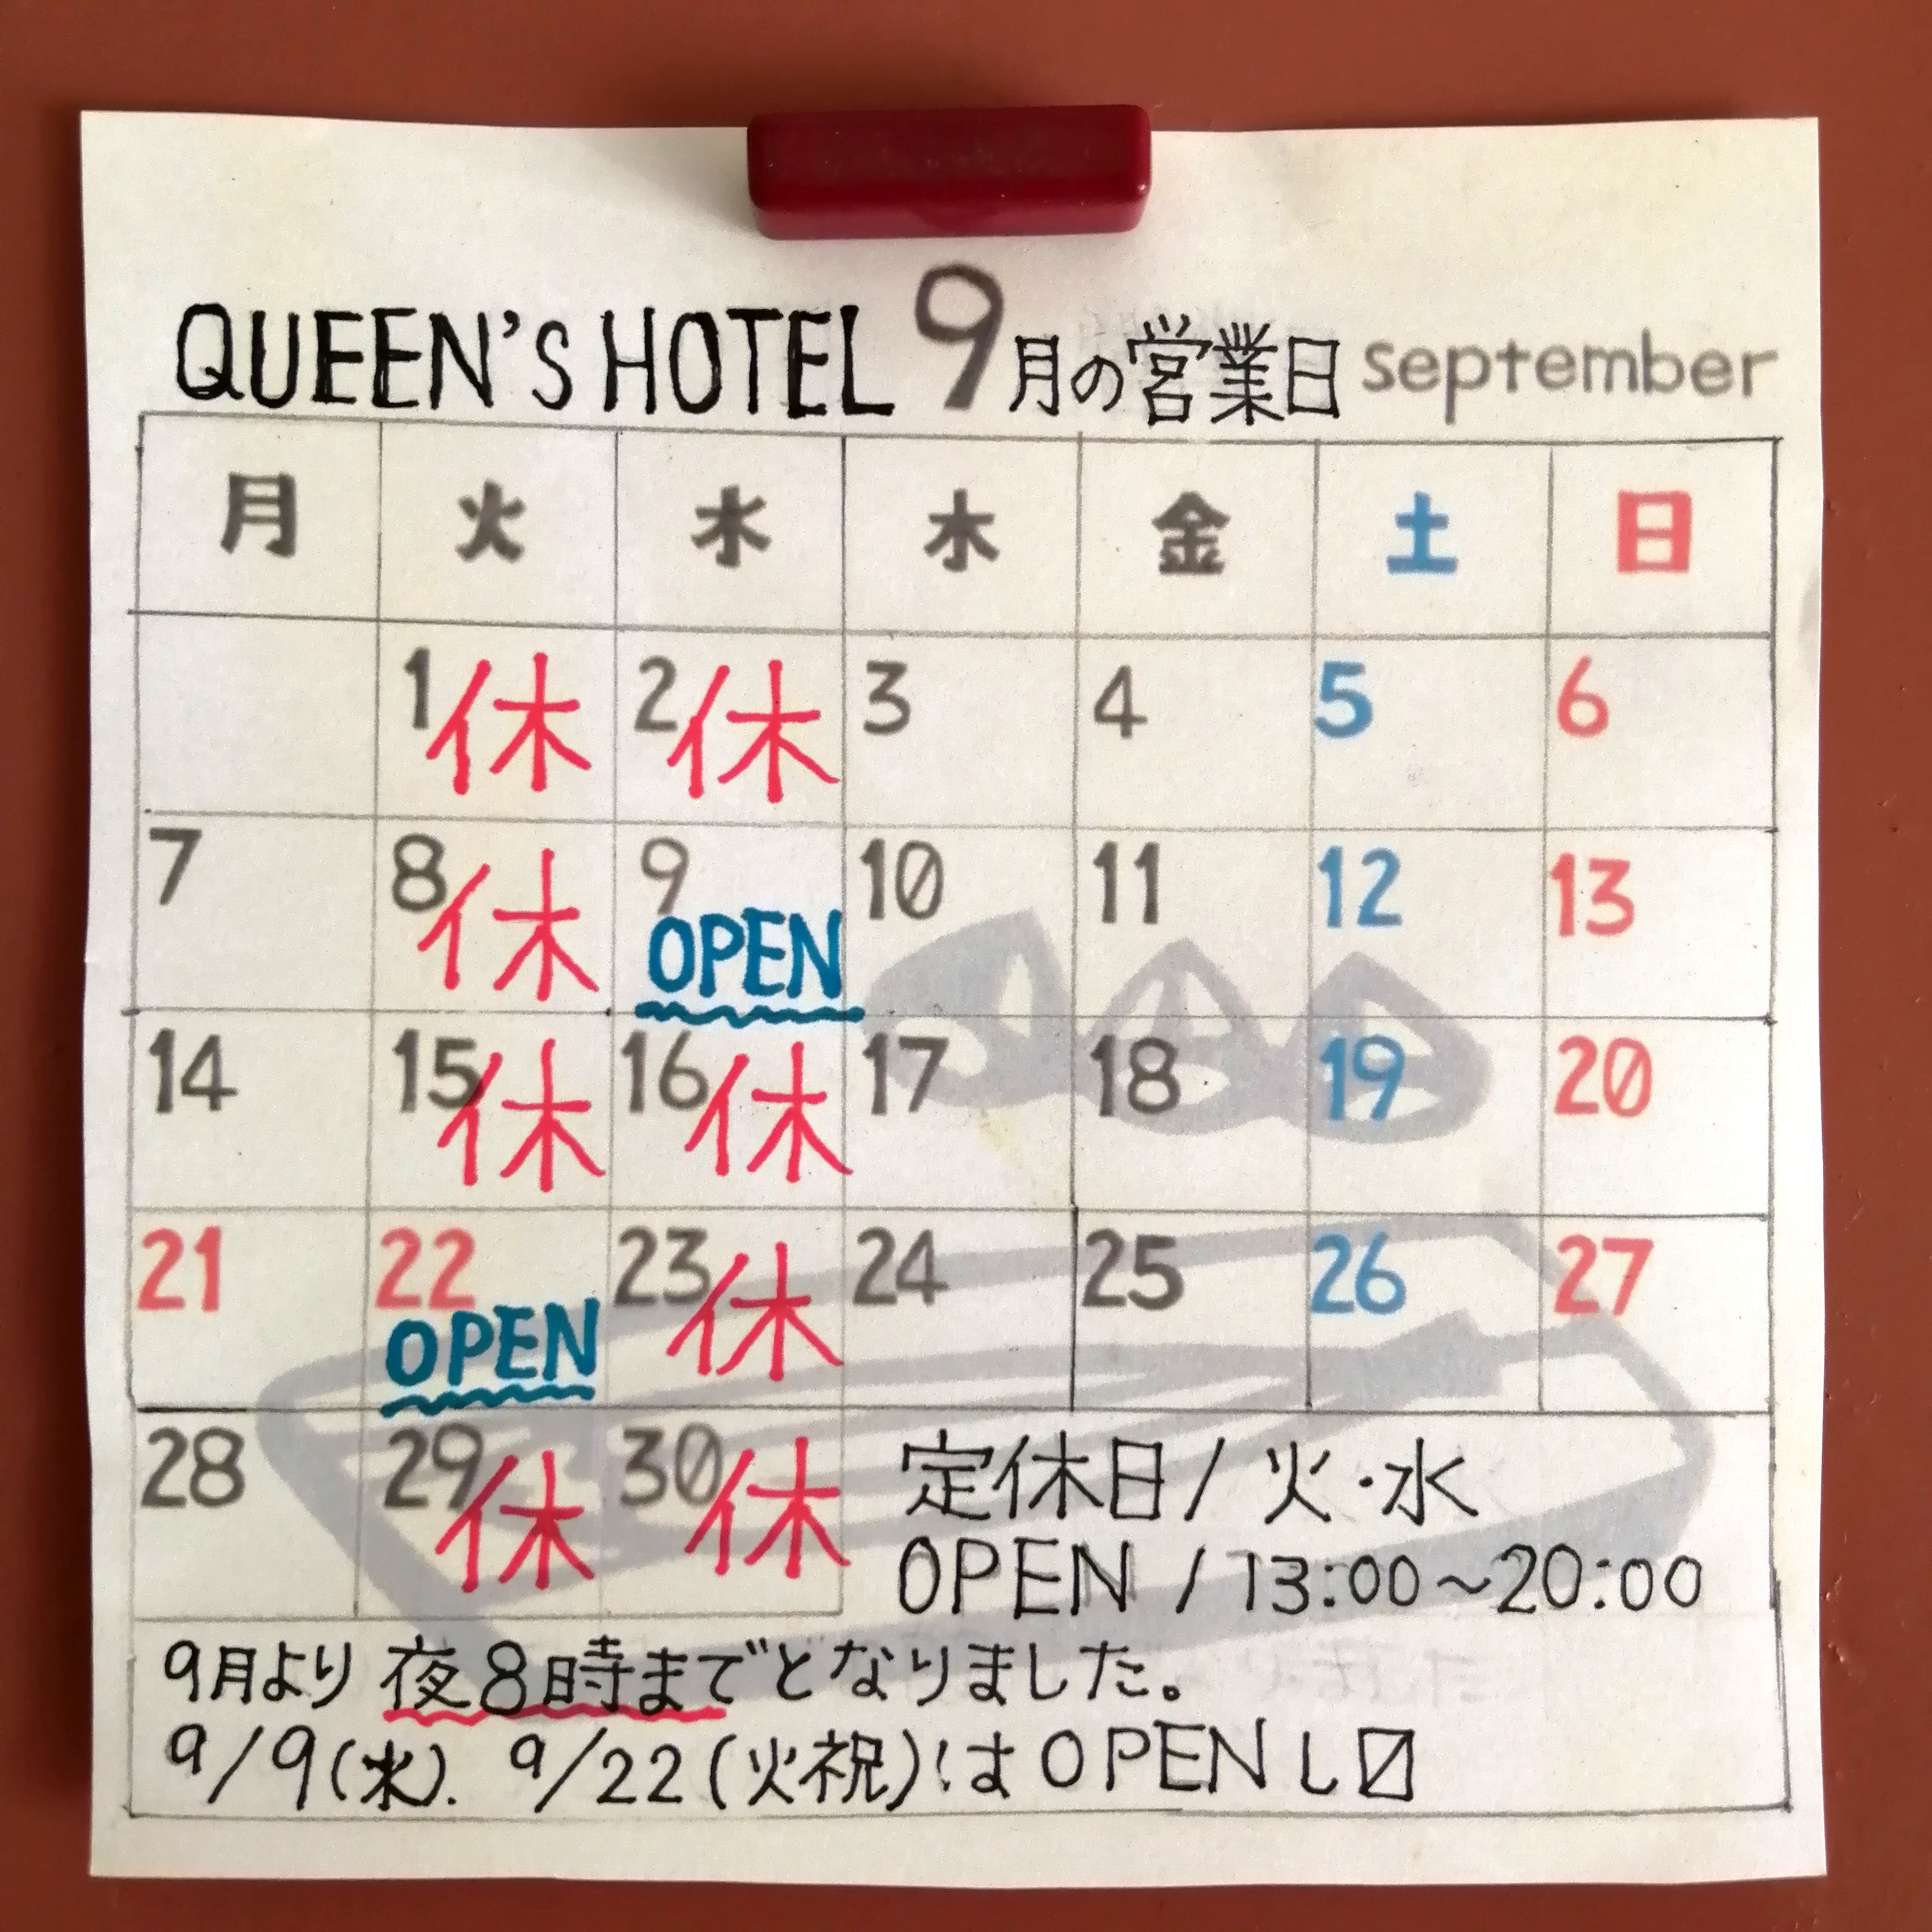 QUEEN'S HOTEL 9月の営業日 september
月 火 水 木 金 土 日
1休 2休 3 4 5 6
7 8休 9 OPEN 10 11 12 13
14 15休 16休 17 18 19 20
21 22 OPEN 23休 24 25 26 27
28 29休 30休
定休日/火・水
OPEN / 13:00～20:00
9月より 夜8時までとなりました。
9/9(水). 9/22(火祝)は OPENし〼